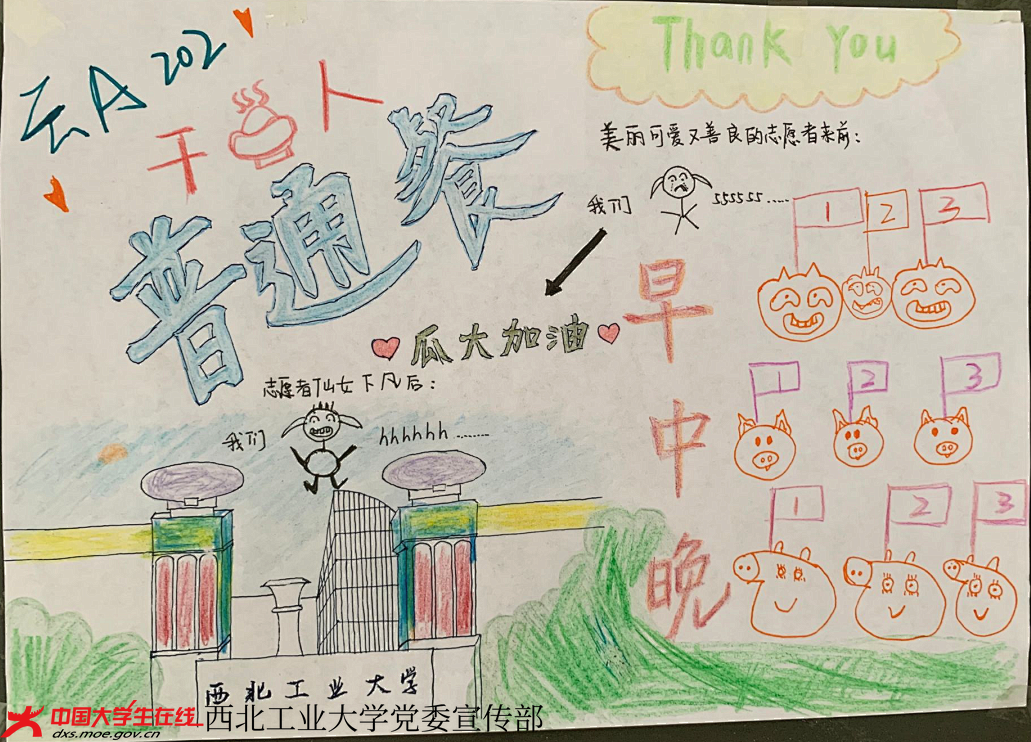 云A202
Thank You
干 人
普通餐
美丽可爱又善良的志愿者来前:
我们
555555.....
1 2 3
早
瓜大加油
志愿者仙女下凡后:
我们
hhhhhh.......
1 2 3
中
1 2 3
晚
西北工业大学
中国大学生在线
dxs.moe.gov.cn
西北工业大学党委宣传部